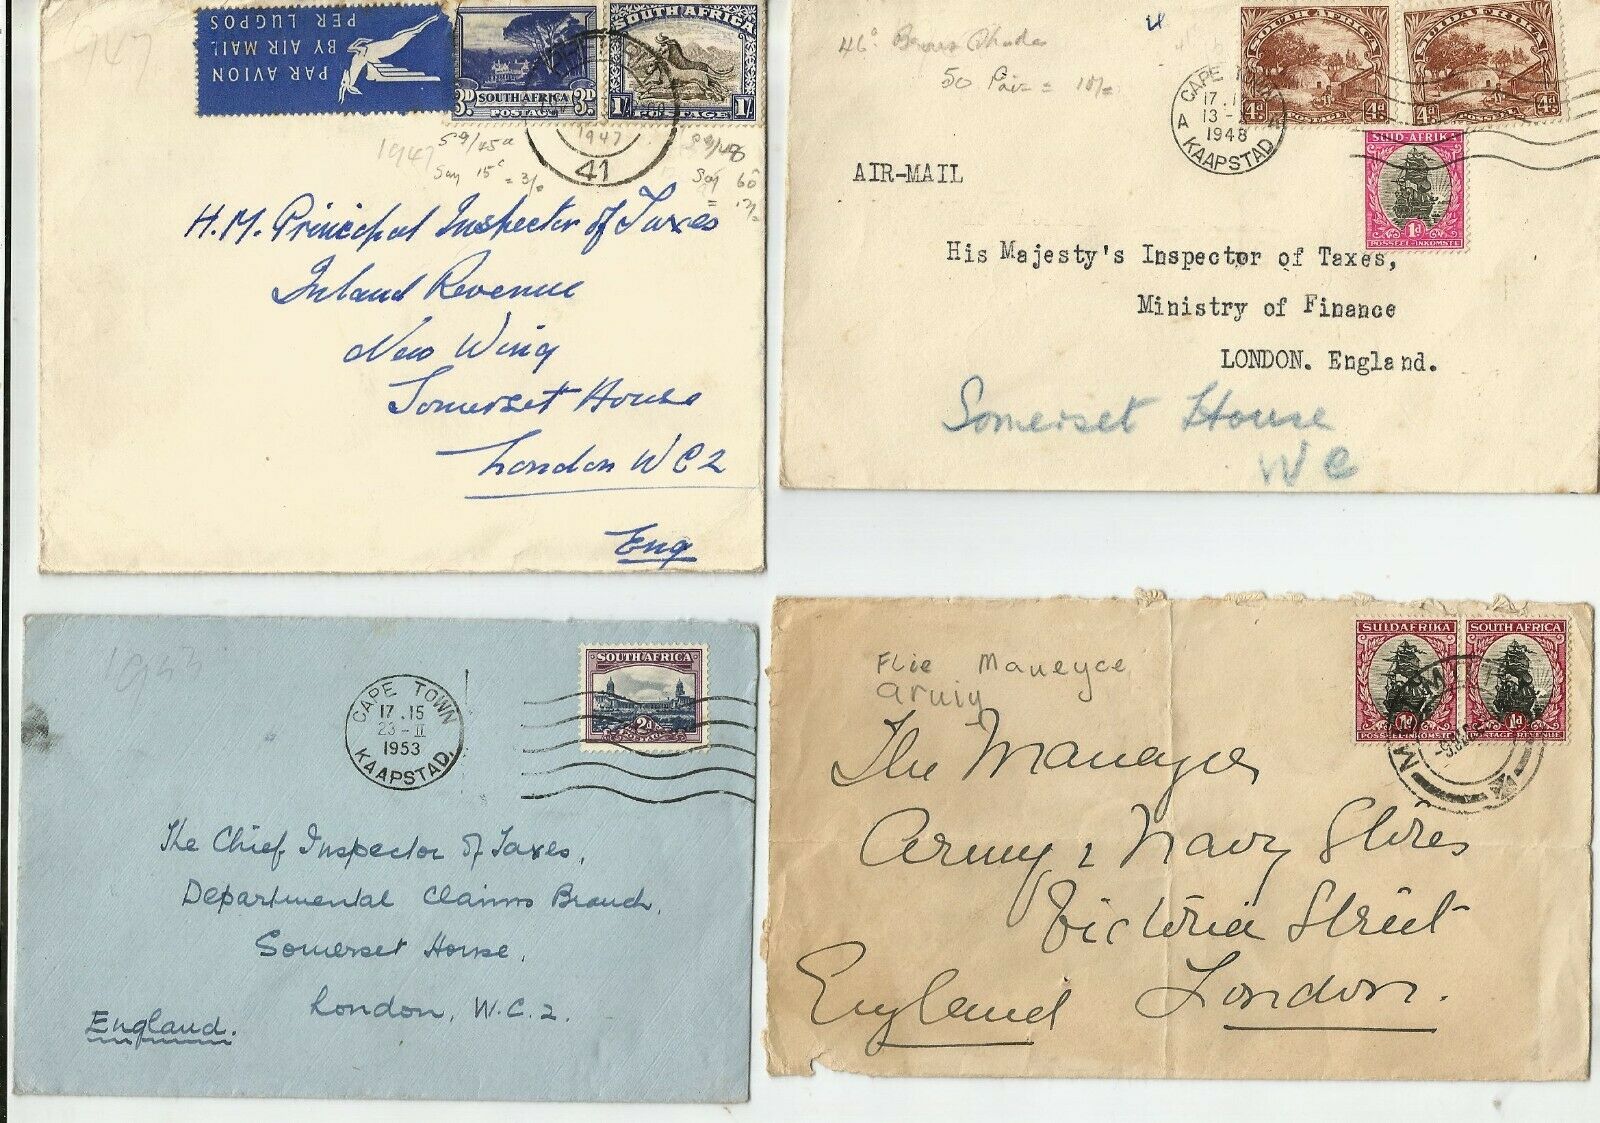 1947
PAR AVION
BY AIR MAIL
PER LUGPOS
SOUTH AFRICA
3D 3D
POSTAGE
SOUTH AFRICA
1/- 1/-
POSTAGE
1947
41
1947
Say 15
= 3/-
Say 60
H.M. Principal Inspector of Taxes
Inland Revenue
New Wing
Somerset House
London WC2
Eng
50 Pair = 10/=
CAPE TOWN
17.
13 -
1948
A KAAPSTAD
SOUTH AFRICA
4d 4d
POSTAGE
SUIDAFRIKA
4d 4d
SUID-AFRIKA
1d
POSSEEL-INKOMSTE
AIR-MAIL
His Majesty's Inspector of Taxes,
Ministry of Finance
LONDON. England.
Somerset House
WC
1953
CAPE TOWN
17.15
23-II
1953
KAAPSTAD
SOUTH AFRICA
2d
POSTAGE
The Chief Inspector of Taxes,
Departmental Claims Branch,
Somerset House,
London, W.C.2.
England.
Flie Maneyce
aruiy
SUIDAFRIKA
1d
POSSEEL-INKOMSTE
SOUTH AFRICA
1d
POSTAGE-REVENUE
The Manager
Army & Navy Stores
Victoria Street
London.
England